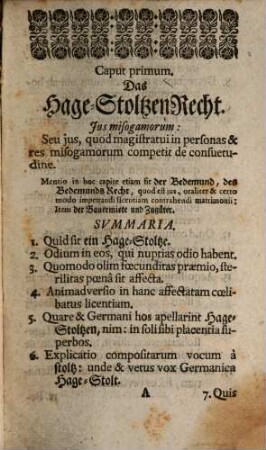 Caput primum.
Das
Hage-StoltzenRecht.
Jus misogamorum:
Seu jus, quod magistratui in personas &
res misogamorum competit de consuetu-
dine.
Mentio in hoc capite etiam fit der Bedemund, des
Bedemunds Recht, quod est jus, qualiter & certo
modo impetrandi licentiam contrahendi matrimonii;
Item der Bauermiete und Zunöter.
SVMMARIA.
1. Quid sit ein Hage-Stoltze.
2. Odium in eos, qui nuptias odio habent.
3. Quomodo olim fœcunditas præmio, ste-
rilitas pœnâ sit affecta.
4. Animadversio in hanc affectatam cœli-
batus licentiam.
5. Quare & Germani hos apellarint Hage-
Stoltzen, nim: in soli sibi placentia su-
perbos.
6. Explicatio compositarum vocum à
stoltz: unde & vetus vox Germanica
Hage-Stolt.
A 7. Quis